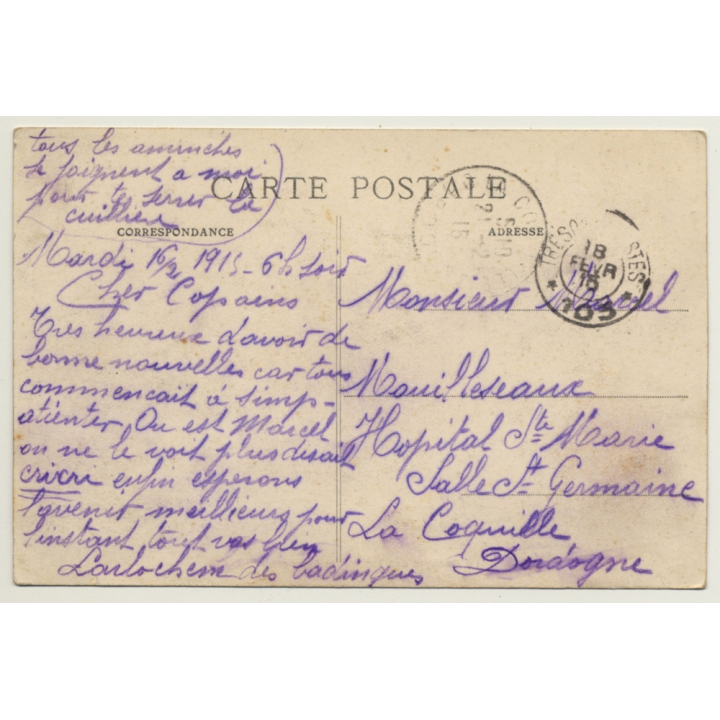 tous les aminches
se joignent a moi
pour te serrer la
cuillère
CARTE POSTALE
CORRESPONDANCE
ADRESSE
TRESOR POSTES
18
FEVR
15
* 103 *
Mardi 16/2 1915 - 6h soir
Cher Copains
Tres heureux d'avoir de
bonne nouvelles car tous
commencait à s'imp-
atienter. Ou est Marcel
on ne le voit plus disait
cricri enfin esperons
l'avenir meilleurs pour
l'instant tout vas bien
des badingues
Monsieur Marcel
Mouilleseaux
Hopital Ste Marie
Salle St Germaine
La Coquille
Dordogne